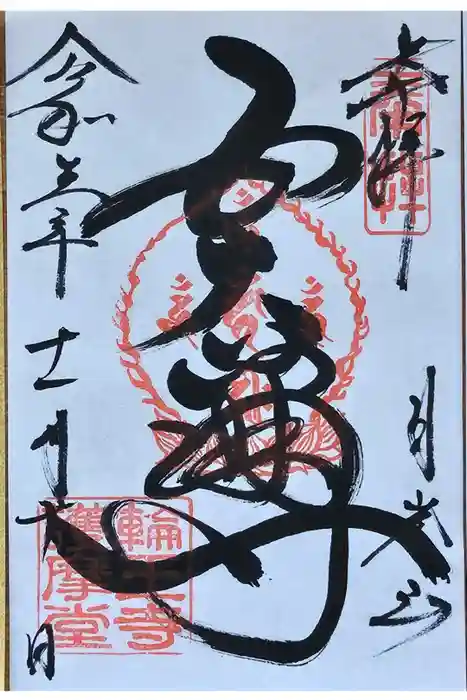 奉拝
日光山
五大尊
令和三年
十一月
日
輪王寺
護摩堂